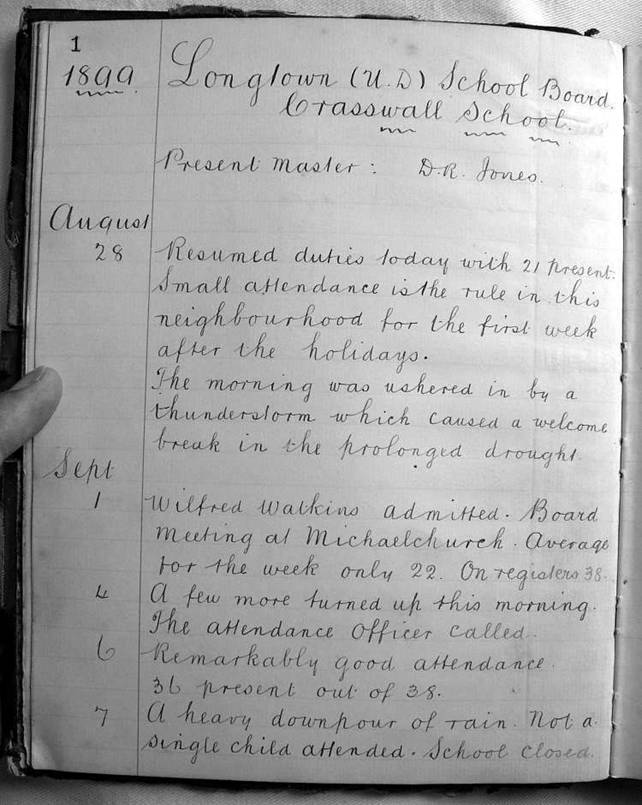 1
1899. Longtown (U.D) School Board.
Crasswall School.
Present Master: D.R. Jones.
August
28 Resumed duties today with 21 present.
Small attendance is the rule in this
neighbourhood for the first week
after the holidays.
The morning was ushered in by a
thunderstorm which caused a welcome
break in the prolonged drought.
Sept
1 Wilfred Watkins admitted. Board
Meeting at Michaelchurch. Average
for the week only 22. On registers 38.
4 A few more turned up this morning.
The attendance Officer called.
6 Remarkably good attendance.
36 present out of 38.
7 A heavy downpour of rain. Not a
single child attended. School closed.